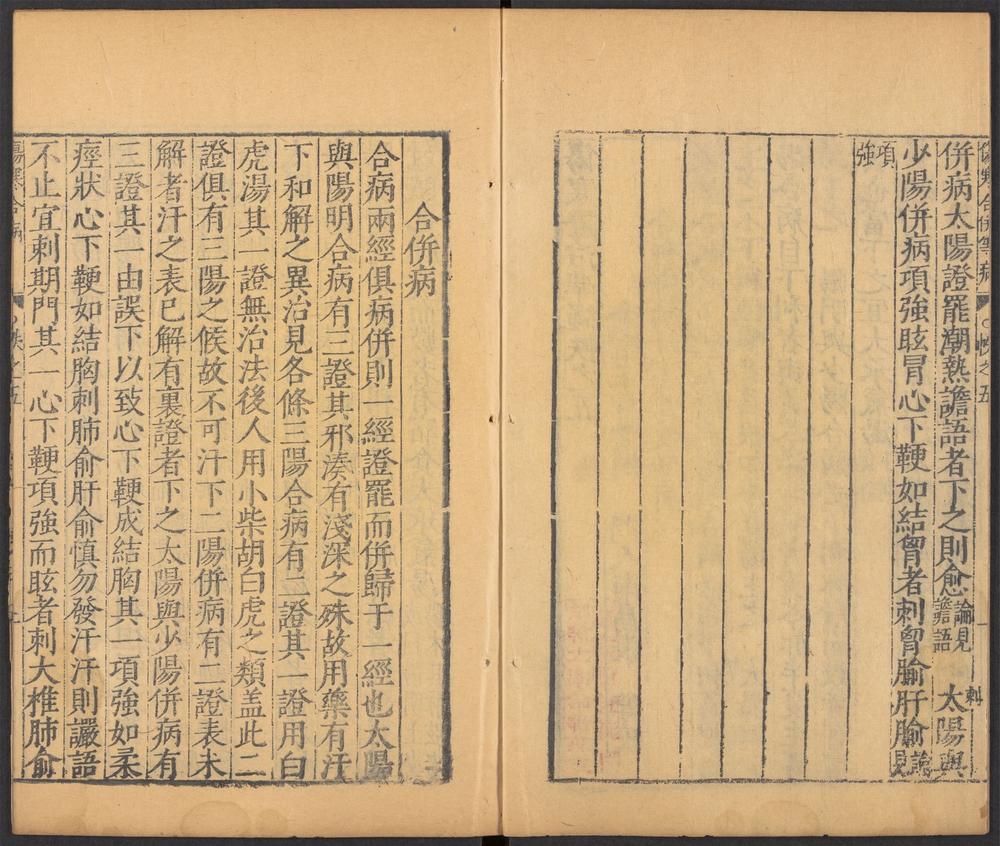 傷寒合併等病 帙之五
併病太陽證罷潮熱譫語者下之則愈論見譫語 太陽與
少陽併病項強眩冒心下鞕如結胷者刺胷腧肝腧論見
項強
刺
合併病
合病兩經俱病併則一經證罷而併歸于一經也太陽
與陽明合病有三證其邪湊有淺深之殊故用藥有汗
下和解之異治見各條三陽合病有二證其一證用白
虎湯其一證無治法後人用小柴胡白虎之類盖此二
證俱有三陽之候故不可汗下二陽併病有二證表未
解者汗之表已解有裏證者下之太陽與少陽併病有
三證其一由誤下以致心下鞕成結胸其一項強如柔
痙狀心下鞕如結胸刺肺俞肝俞慎勿發汗汗則讝語
不止宜刺期門其一心下鞕項強而眩者刺大椎肺俞
傷寒合病 帙之五